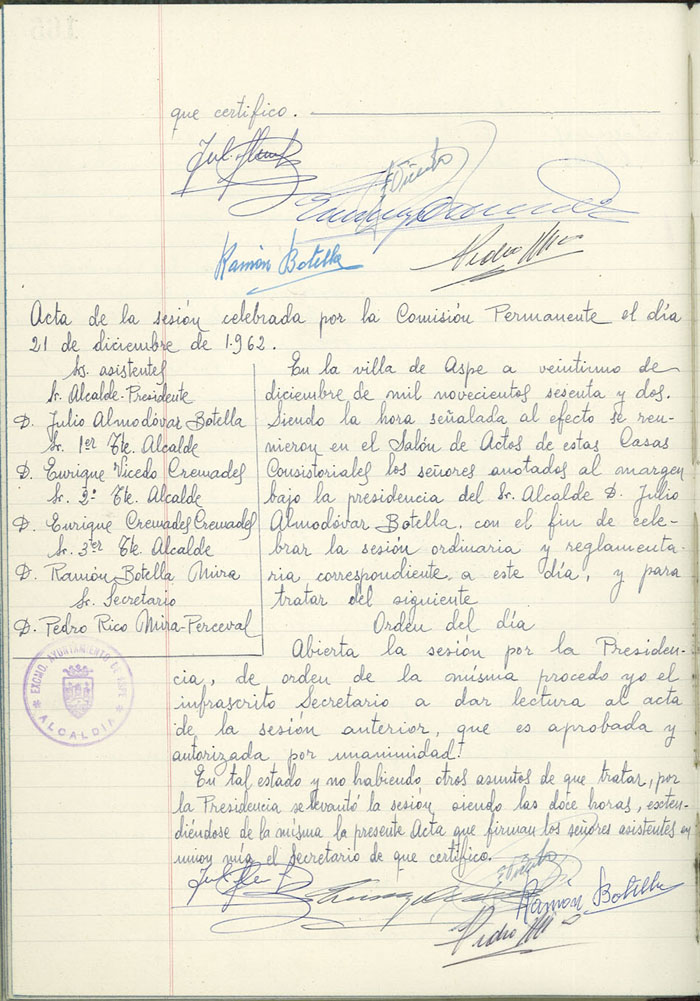 que certifico.
E Vicedo
Ramón Botella
Pedro
Acta de la sesión celebrada por la Comisión Permanente el día
21 de diciembre de 1.962.
Sres. asistentes
Sr. Alcalde-Presidente
D. Julio Almodóvar Botella
Sr. 1er Tte. Alcalde
D. Enrique Vicedo Cremades
Sr. 2º Tte. Alcalde
D. Enrique Cremades Cremades
Sr. 3er Tte. Alcalde
D. Ramón Botella Mira
Sr. Secretario
D. Pedro Rico Mira-Perceval
EXCMO. AYUNTAMIENTO DE ASPE
* ALCALDIA *
En la villa de Aspe a veintiuno de
diciembre de mil novecientos sesenta y dos.
Siendo la hora señalada al efecto se reu-
nieron en el Salón de Actos de estas Casas
Consistoriales los señores anotados al margen
bajo la presidencia del Sr. Alcalde D. Julio
Almodóvar Botella, con el fin de cele-
brar la sesión ordinaria y reglamenta-
ria correspondiente a este día, y para
tratar del siguiente
Orden del día
Abierta la sesión por la Presiden-
cia, de orden de la misma procedo yo el
infrascrito Secretario a dar lectura al acta
de la sesión anterior, que es aprobada y
autorizada por unanimidad.
En tal estado y no habiendo otros asuntos de que tratar, por
la Presidencia se levantó la sesión siendo las doce horas, exten-
diéndose de la misma la presente Acta que firman los señores asistentes en
unión mía el Secretario de que certifico.
E Vicedo
Ramón Botella
Pedro